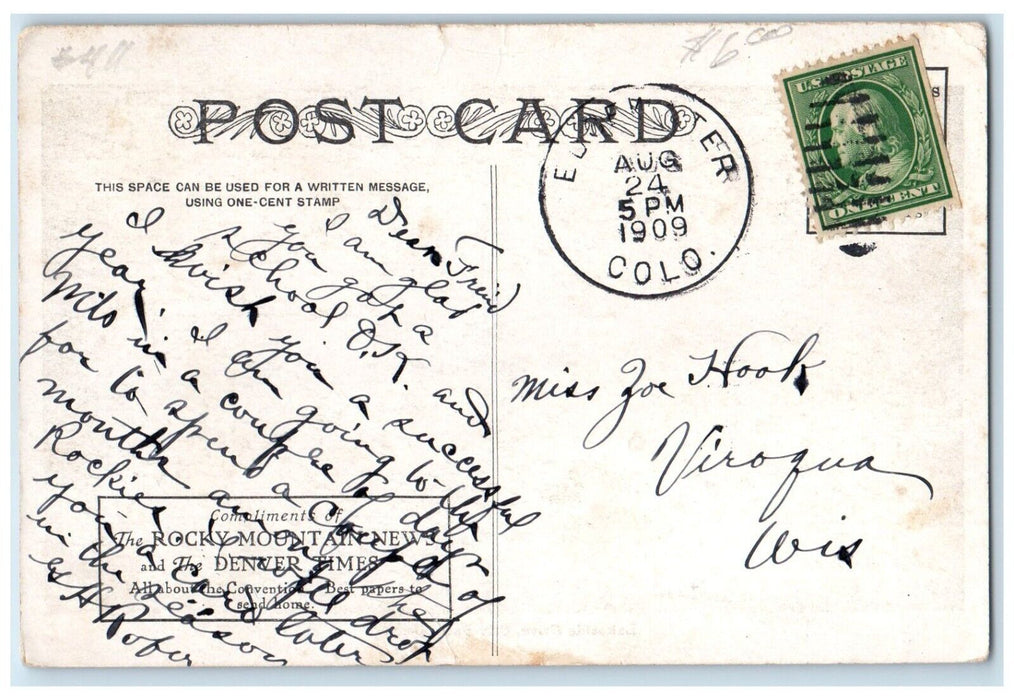 #411
#6.00
POST CARD
THIS SPACE CAN BE USED FOR A WRITTEN MESSAGE,
USING ONE-CENT STAMP
AUG
24
5 PM
1909
COLO.
U.S. POSTAGE
ONE CENT
Dear Freind
I am glad
you got a
school O.K. and
I wish you a successful
year. I am going to the
Mts in a couple of days
for to spend a couple of
months and will
Rockies drop
you a card later
in the season
as H
Compliments of
The ROCKY MOUNTAIN NEWS
and The DENVER TIMES
All about the Convention Best papers to
send home.
Miss Zoe Hook
Viroqua
Wis